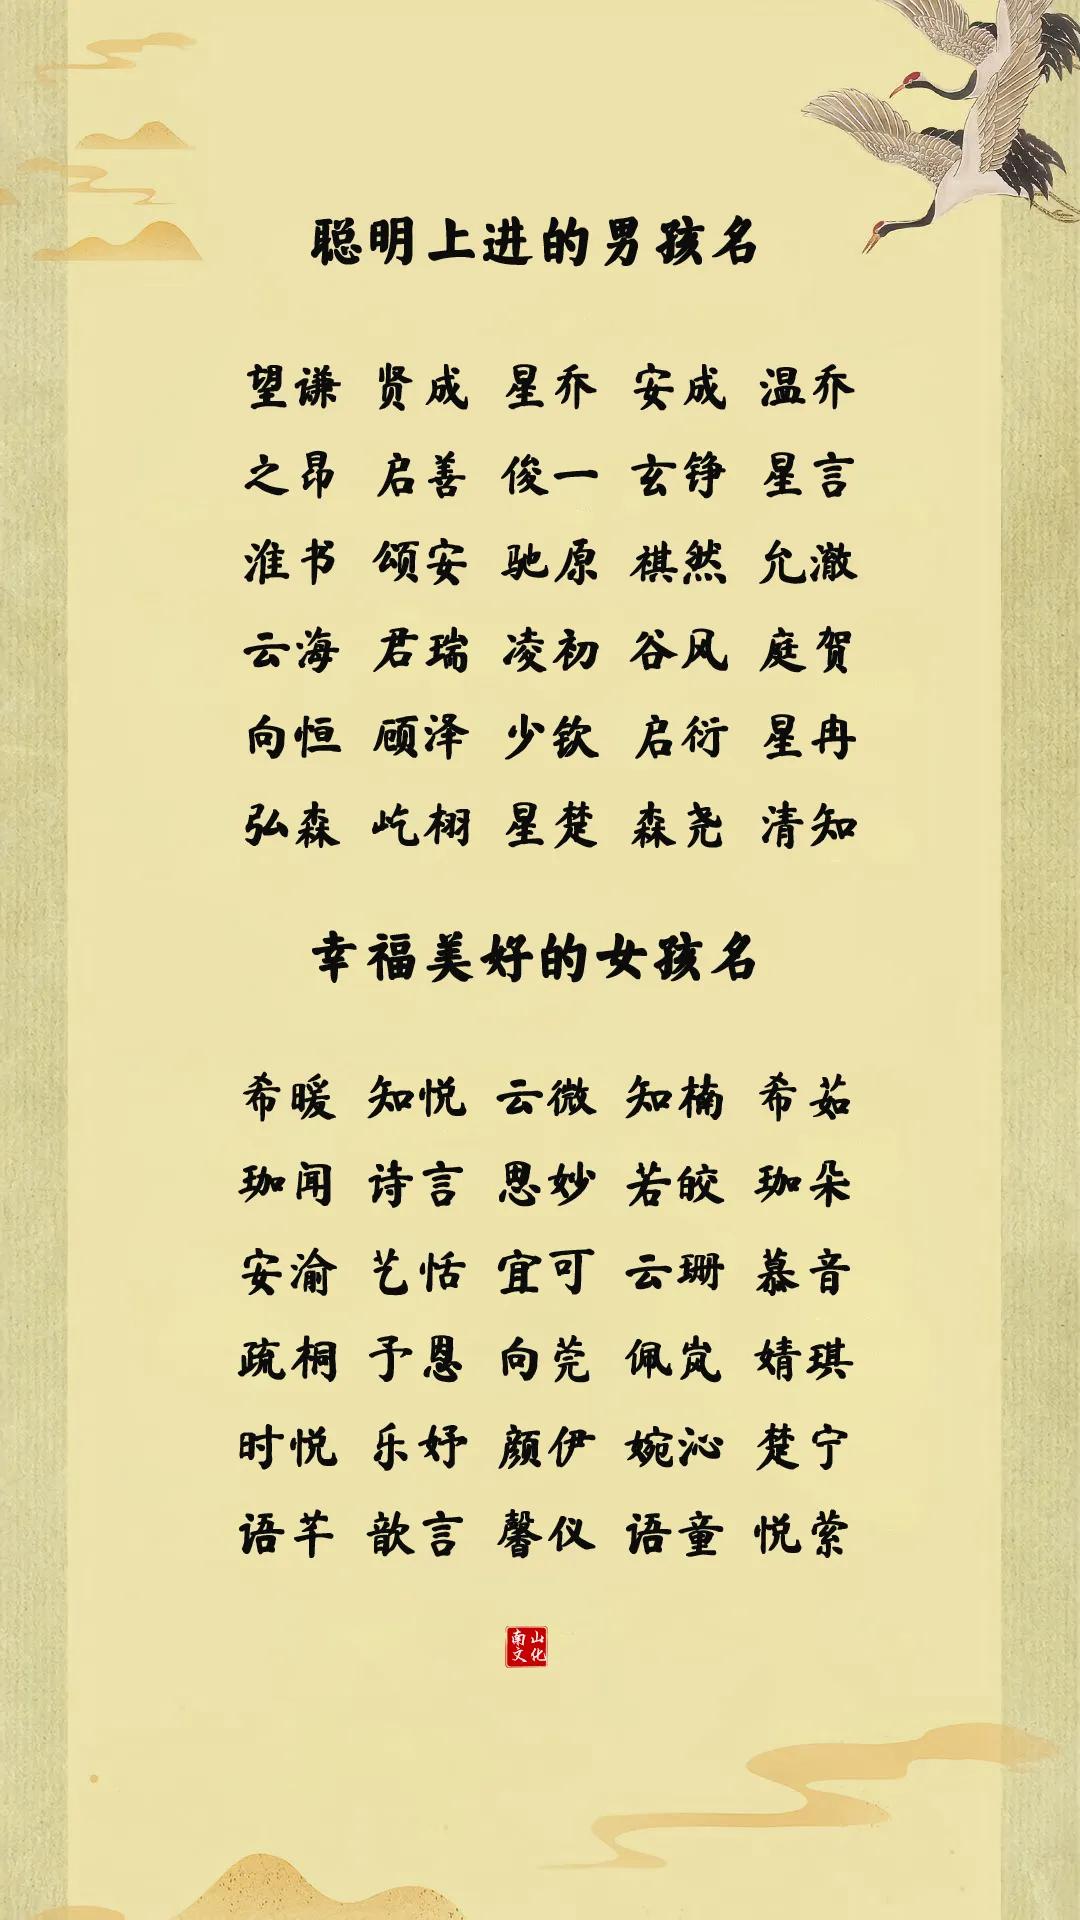 聪明上进的男孩名
望谦 贤成 星乔 安成 温乔
之昂 启善 俊一 玄铮 星言
淮书 颂安 驰原 祺然 允澈
云海 君瑞 凌初 谷风 庭贺
向恒 顾泽 少钦 启衍 星冉
弘森 屹栩 星楚 森尧 清知
幸福美好的女孩名
希暖 知悦 云微 知楠 希茹
珈闻 诗言 思妙 若皎 珈朵
安渝 艺恬 宜可 云珊 慕音
疏桐 予恩 向莞 佩岚 婧琪
时悦 乐妤 颜伊 婉沁 楚宁
语芊 歆言 馨仪 语童 悦萦
南山
文化